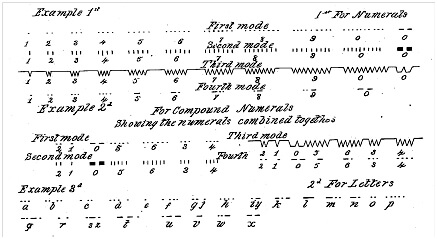 Example 1st 1st For Numerals
First mode
1 2 3 4 5 6 7 8 9 0 0
Second mode
1 2 3 4 5 6 7 8 9 0 0
Third mode
1 2 3 4 5 6 7 8 9 0 0
Fourth mode
1 2 3 4 5 6 7 8 9 0
Example 2d For Compound Numerals
Showing the numerals combined together
First mode Third mode
2 1 0 5 6 3 4 2 1 0 5 6 3 4
Second mode Fourth
2 1 0 5 6 3 4 2 1 0 5 6 3 4
Example 3d 2d For Letters
a b c d e f g j h i y k l m n o p
q r s z t u v w x